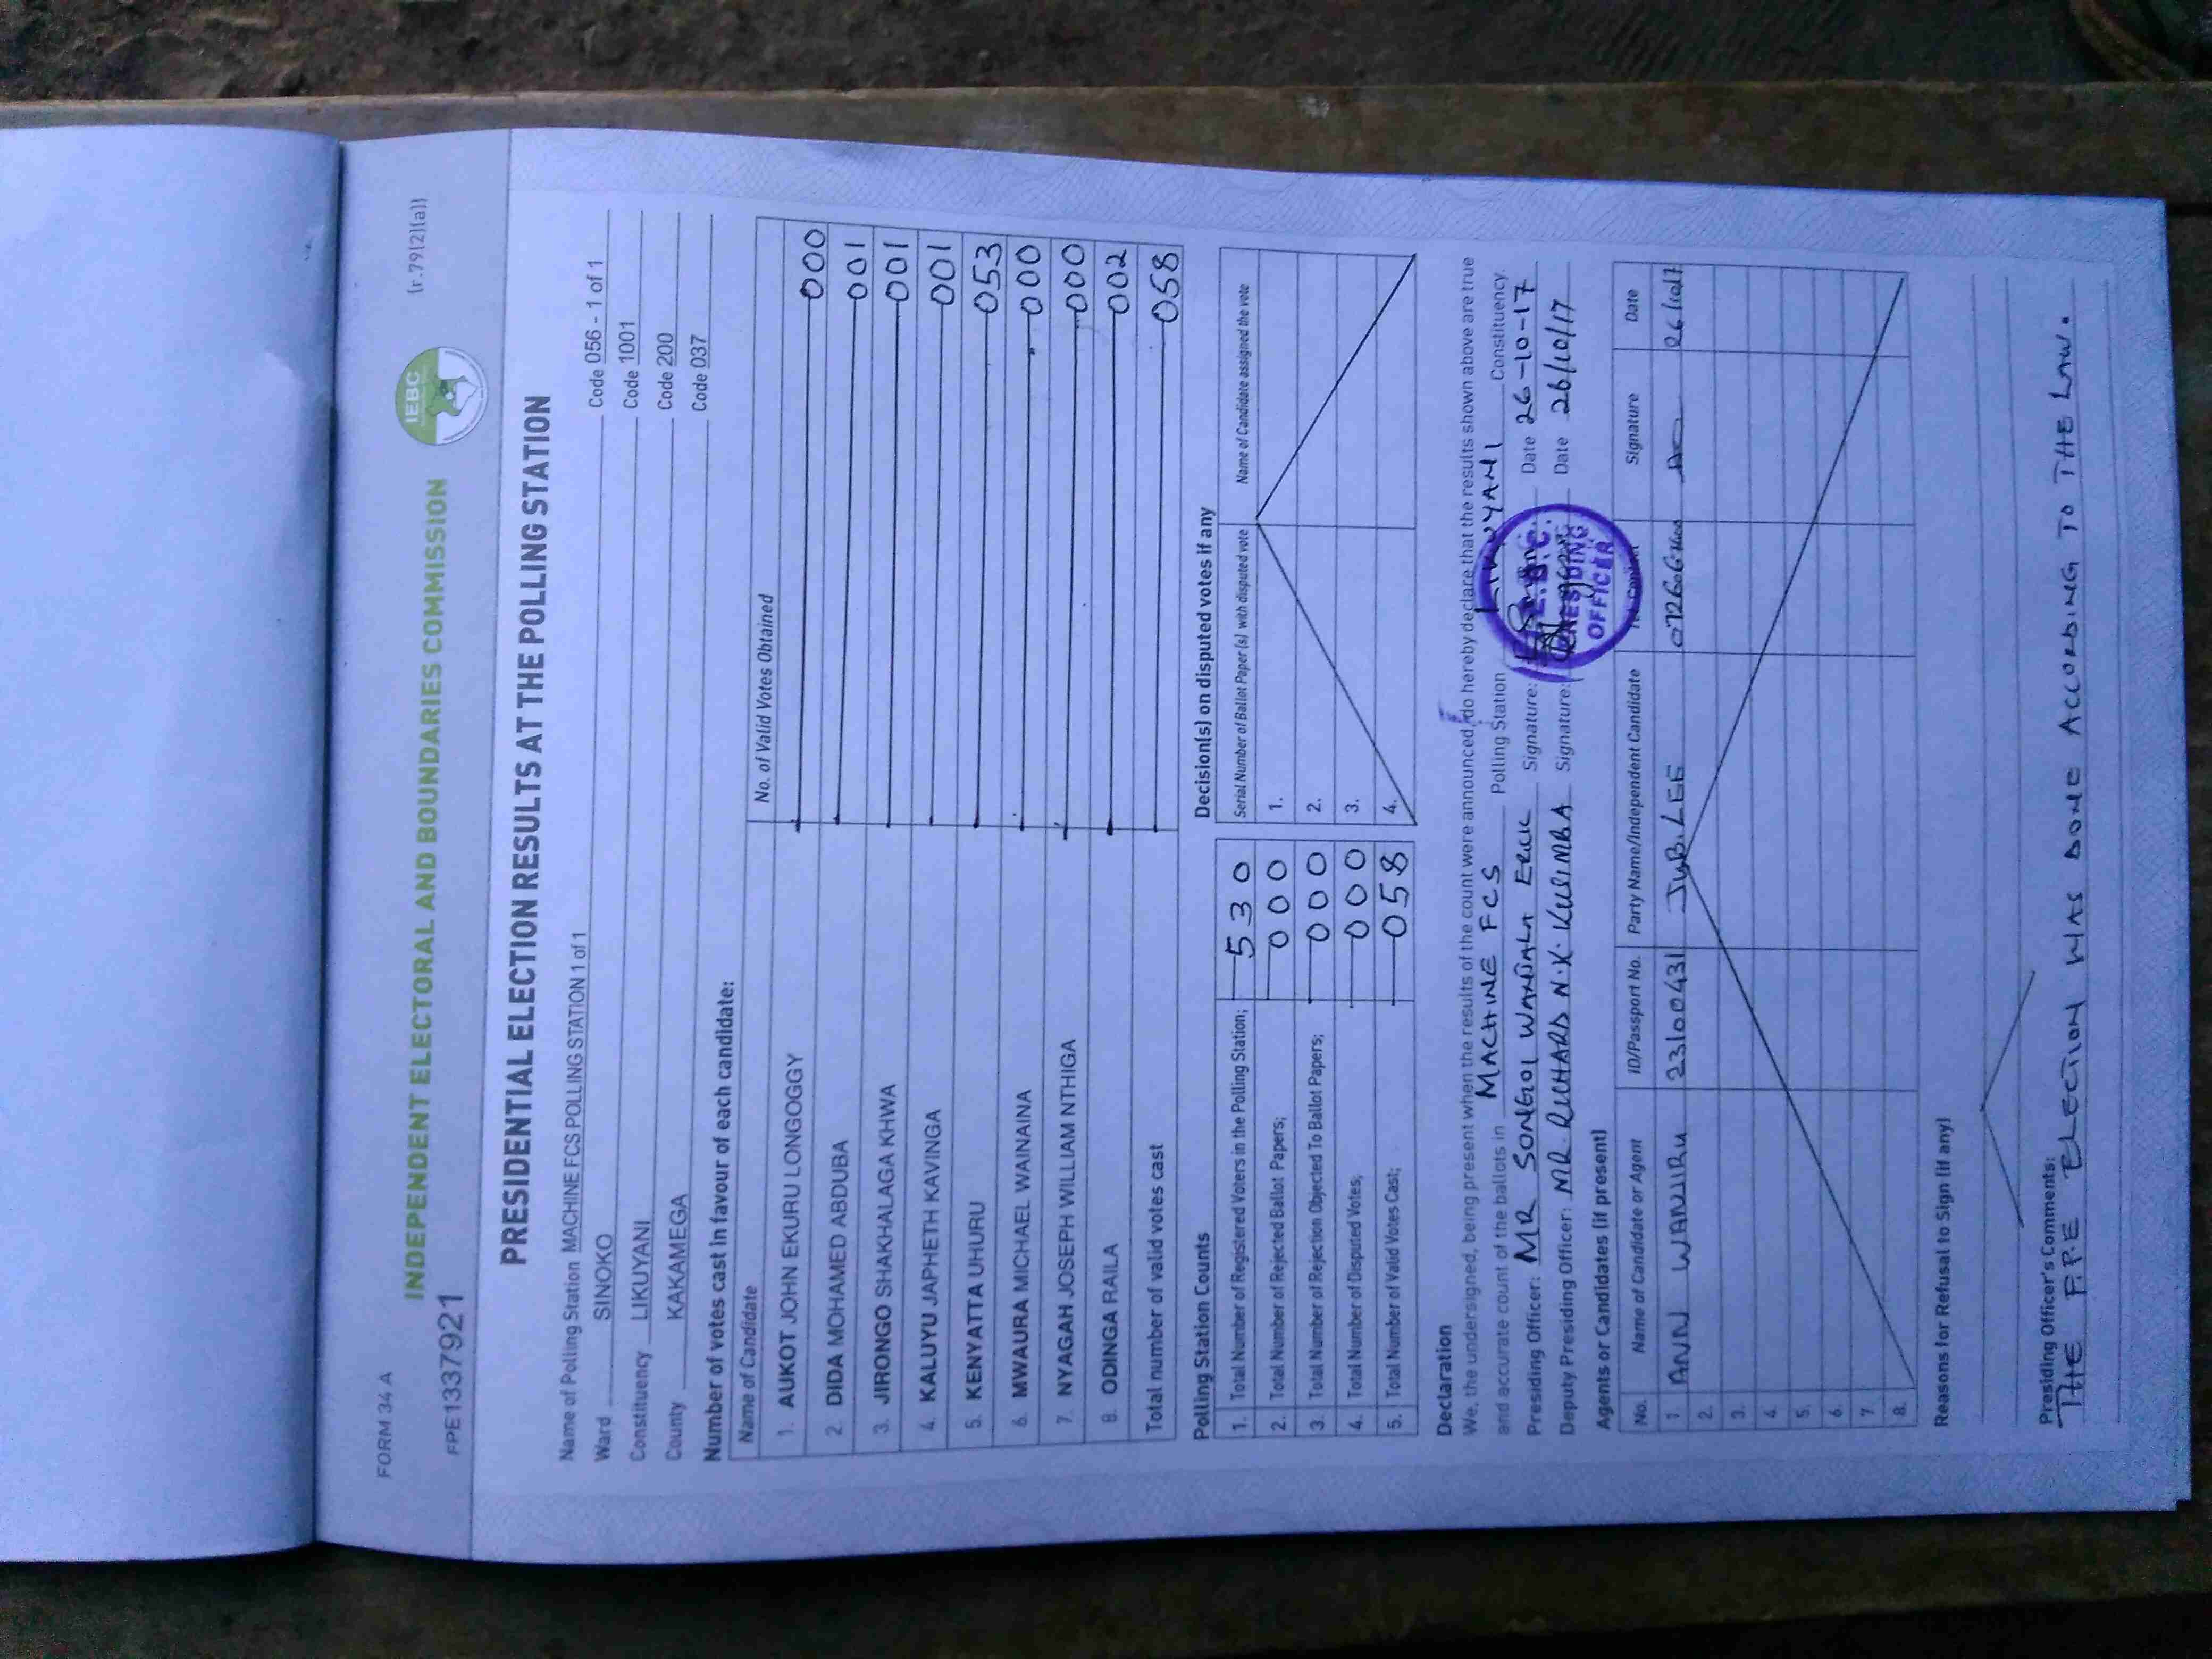 FORM 34 A
(r.79(2)(a))
INDEPENDENT ELECTORAL AND BOUNDARIES COMMISSION
IEBC
FPE1337921
PRESIDENTIAL ELECTION RESULTS AT THE POLLING STATION
Name of Polling Station MACHINE FCS POLLING STATION 1 of 1 Code 056 - 1 of 1
Ward SINOKO Code 1001
Constituency LIKUYANI Code 200
County KAKAMEGA Code 037
Number of votes cast in favour of each candidate:
Name of Candidate No. of Valid Votes Obtained
1. AUKOT JOHN EKURU LONGOGGY 000
2. DIDA MOHAMED ABDUBA 001
3. JIRONGO SHAKHALAGA KHWA 001
4. KALUYU JAPHETH KAVINGA 001
5. KENYATTA UHURU 053
6. MWAURA MICHAEL WAINAINA 000
7. NYAGAH JOSEPH WILLIAM NTHIGA 000
8. ODINGA RAILA 002
Total number of valid votes cast 058
Polling Station Counts
1. Total Number of Registered Voters in the Polling Station; 530
2. Total Number of Rejected Ballot Papers; 000
3. Total Number of Rejection Objected To Ballot Papers; 000
4. Total Number of Disputed Votes; 000
5. Total Number of Valid Votes Cast; 058
Decision(s) on disputed votes if any
Serial Number of Ballot Paper (s) with disputed vote Name of Candidate assigned the vote
1.
2.
3.
4.
Declaration
We, the undersigned, being present when the results of the count were announced, do hereby declare that the results shown above are true
and accurate count of the ballots in MACHINE FCS Polling Station LIKUYANI Constituency.
Presiding Officer: MR SONGOI WANJALA ERICK Signature: Date 26-10-17
Deputy Presiding Officer: MR. RICHARD N.K. KULIMBA Signature: Date 26/10/17
I.E.B.C.
PRESIDING
OFFICER
Agents or Candidates (if present)
No. Name of Candidate or Agent ID/Passport No. Party Name/Independent Candidate Tel. Contact Signature Date
1. ANN WANJIRU 23160431 JUBILEE 26/10/17
2.
3.
4.
5.
6.
7.
8.
Reasons for Refusal to Sign (if any)
Presiding Officer's Comments:
THE F.P.E ELECTION WAS DONE ACCORDING TO THE LAW.